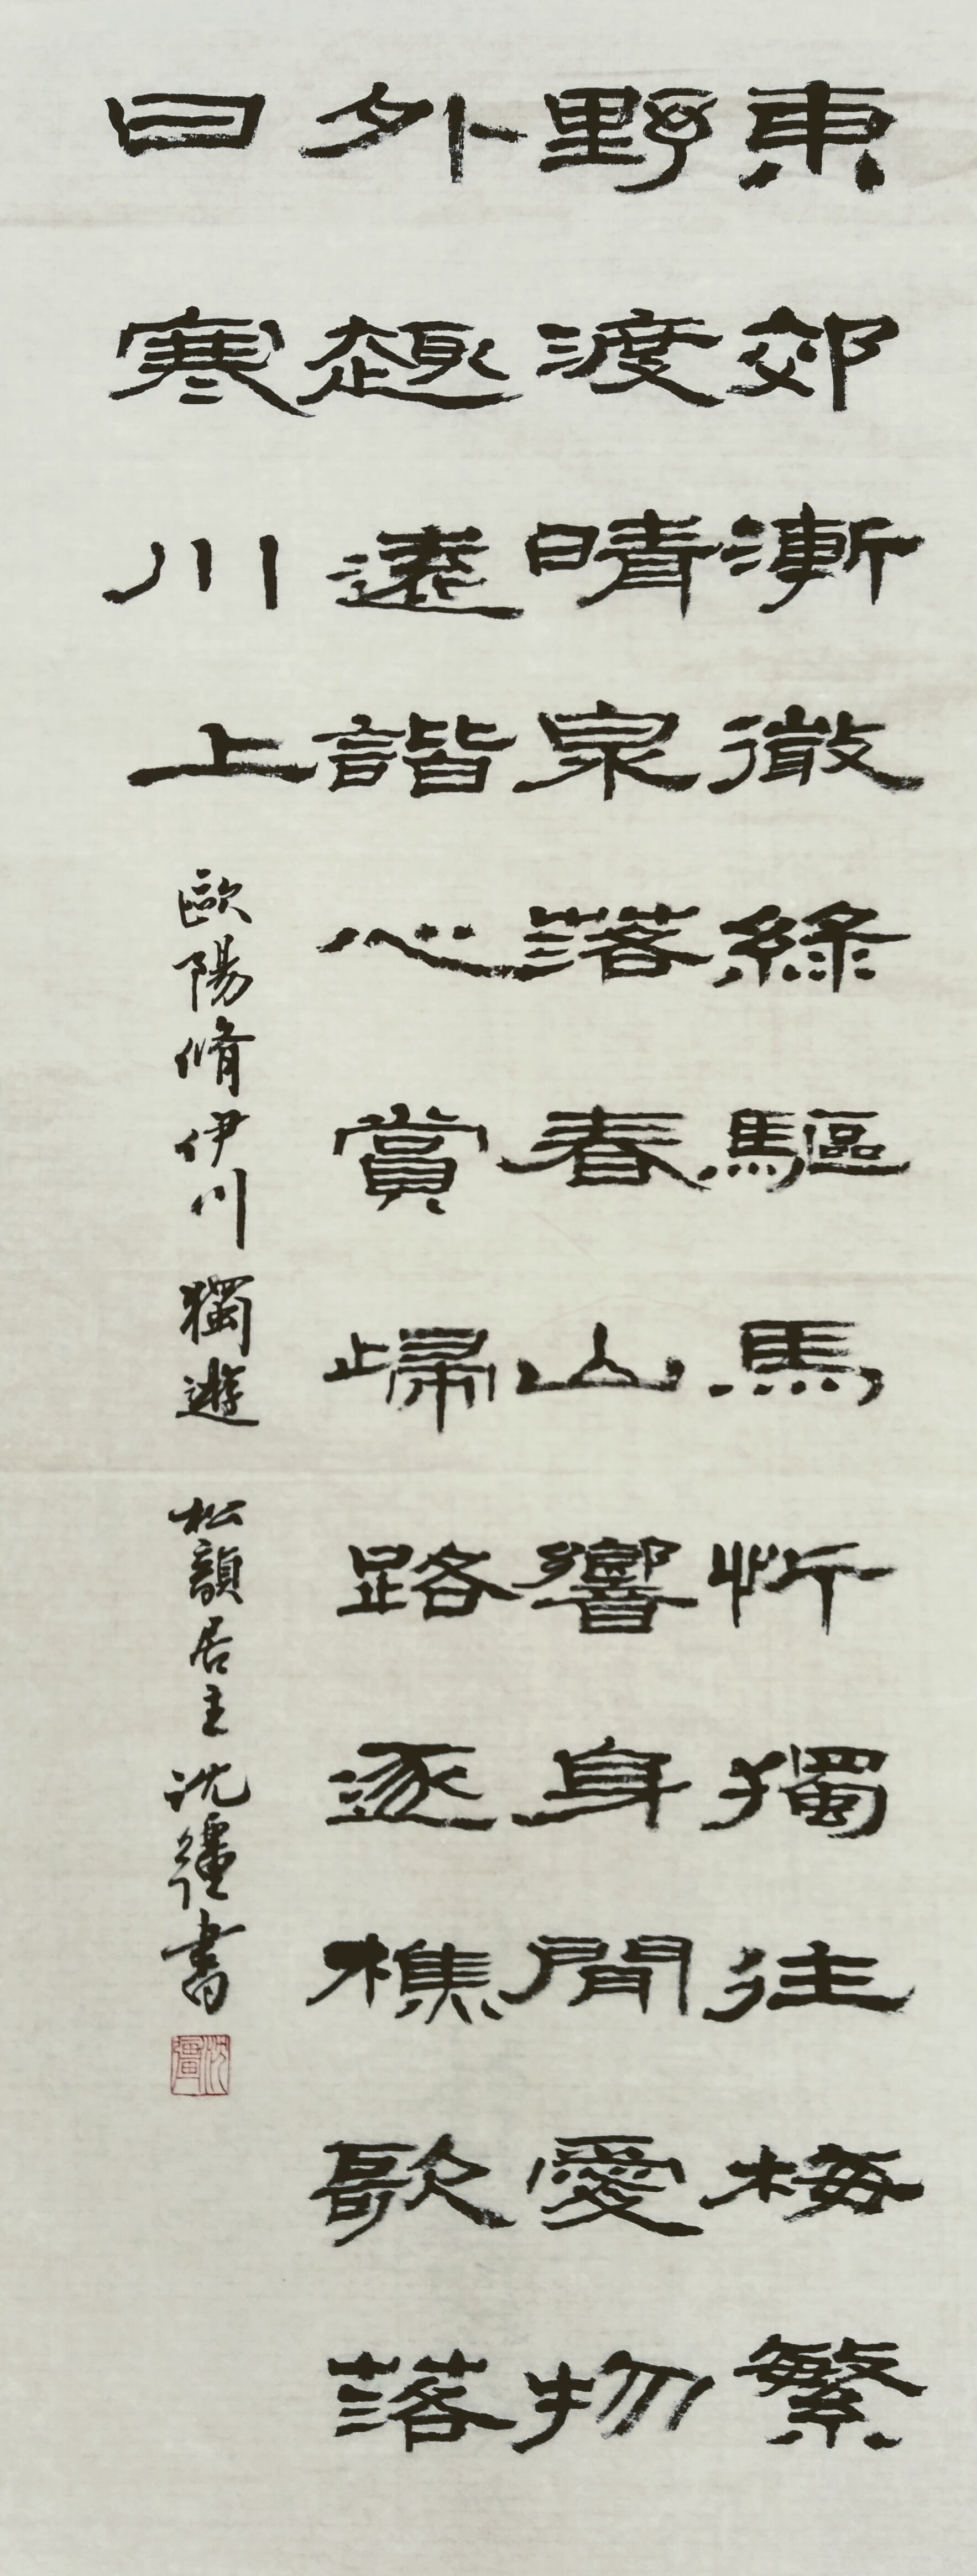 東郊漸微綠驅馬忻獨往梅繁
野渡晴泉落春山響身閒愛物
外趣遠諧心賞歸路逐樵歌落
日寒川上
歐陽脩伊川獨遊 松韻居主沈彊書
沈彊